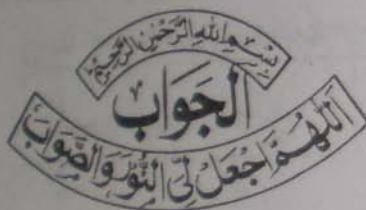 بِسْمِ اللهِ الرَّحْمٰنِ الرَّحِيْمِ
اَلْجَوَابْ
اَللّٰهُمَّ اجْعَلْ لِّىَ النُّوْرَ وَالصَّوَابْ